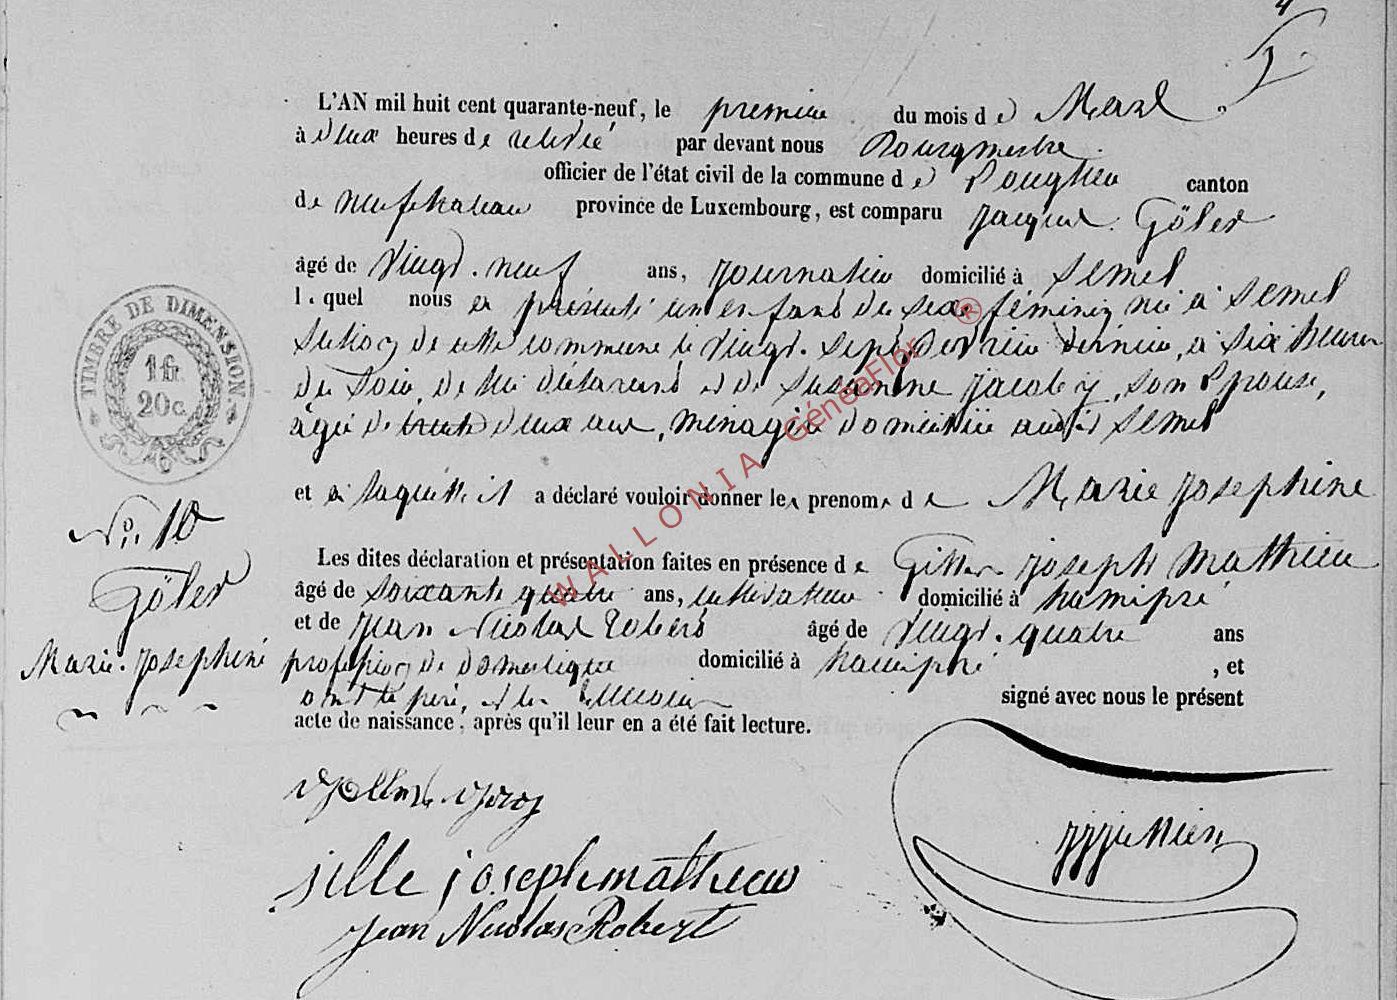 L'AN mil huit cent quarante-neuf, le premier du mois de Mars
à deux heures de relevée par devant nous Bourgmestre
officier de l'état civil de la commune de Longlier canton
de neufchateau province de Luxembourg, est comparu Jacques Göler
âgé de Vingt-neuf ans, journalier domicilié à Semel
lequel nous a présenté un enfant du sexe féminin né à Semel
Section de cette commune le Vingt-sept Février dernier, à Six heures
du Soir, de lui déclarant et de Susanne Jacoby, son Epouse,
âgée de trente deux ans, ménagère domiciliée audit Semel
et à laquelle il a déclaré vouloir donner les prenoms de Marie Josephine
Les dites déclaration et présentation faites en présence de Joseph Mathieu
âgé de soixante quatre ans, cultivateur domicilié à hamipré
et de Jean Nicolas Robert âgé de Vingt-quatre ans
profession de domestique domicilié à hamipré, et
ont le père, et les témoins signé avec nous le présent
acte de naissance, après qu'il leur en a été fait lecture.
TIMBRE DE DIMENSION
1 fr.
20 c.
No. 10
Göler
Marie-Josephine
WALLONIA GénéaFlor ®
sille joseph mathieu
Jean Nicolas Robert